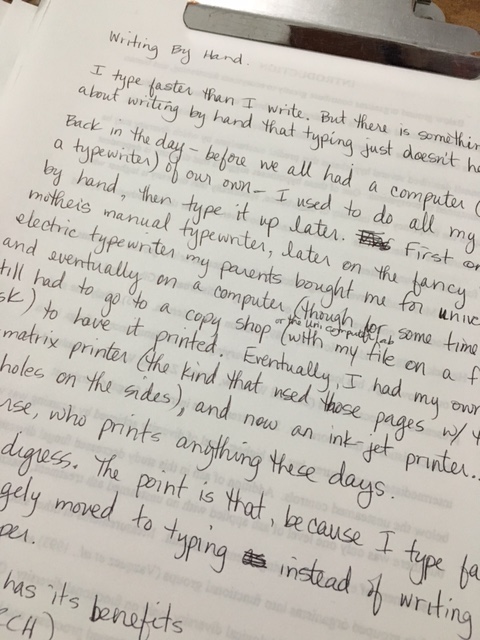 Writing By Hand.
I type faster than I write. But there is somethin
about writing by hand that typing just doesn't h
Back in the day - before we all had a computer (
a typewriter) of our own - I used to do all my
by hand, then type it up later. First on
mother's manual typewriter, later on the fancy
electric typewriter my parents bought me for univ
and eventually on a computer (though for some time
till had to go to a copy shop or the uni computer lab (with my file on a f
sk) to have it printed. Eventually, I had my own
matrix printer (the kind that used those pages w/
holes on the sides), and now an ink-jet printer..
rse, who prints anything these days.
digress. The point is that, because I type fa
gely moved to typing instead of writing
per.
has its benefits
ECH)